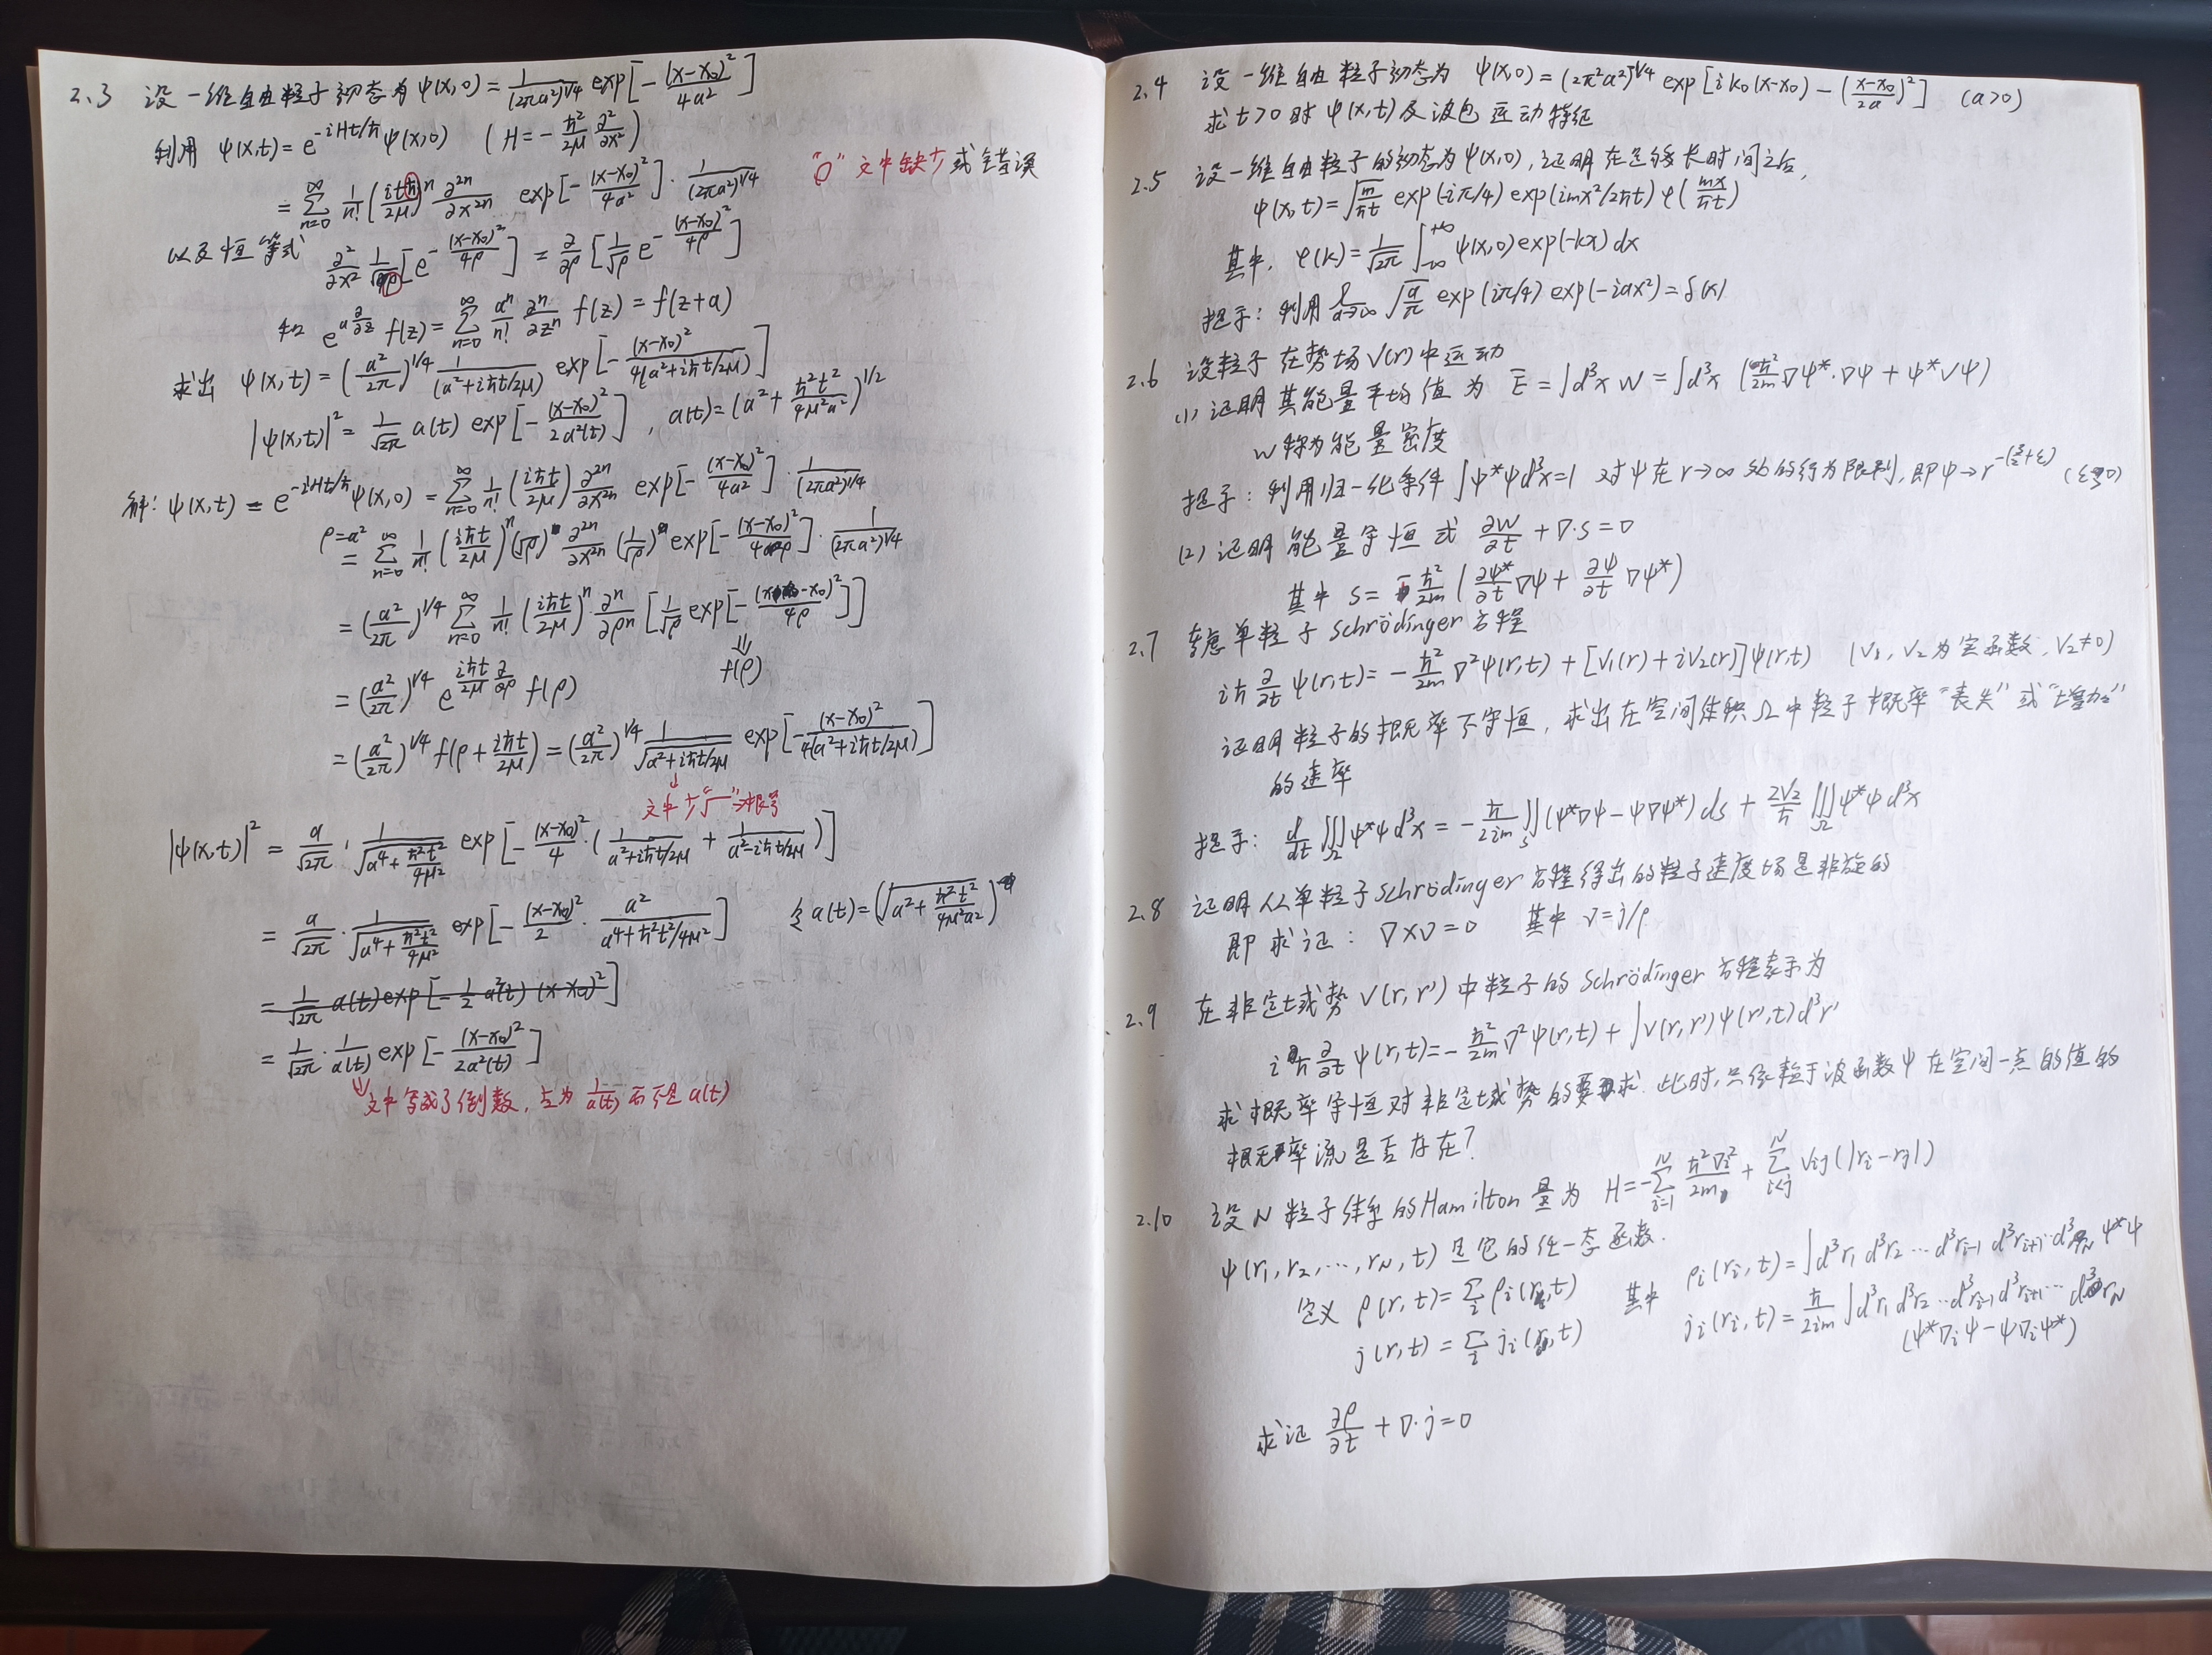 2.3 设一维自由粒子初态为 ψ(x,0) = 1/(2πa²)^{1/4} exp[-(x-x₀)²/4a²]
利用 ψ(x,t) = e^{-iHt/ħ} ψ(x,0) (H = -ħ²/2μ ∂²/∂x²)
= Σ_{n=0}^∞ 1/n! (itħ/2μ)^n ∂^{2n}/∂x^{2n} exp[-(x-x₀)²/4a²] · 1/(2πa²)^{1/4} "O" 文中缺少或错误
以及恒等式 ∂²/∂x² 1/√ρ [e^{-(x-x₀)²/4ρ}] = ∂/∂ρ [1/√ρ e^{-(x-x₀)²/4ρ}]
和 e^{a ∂/∂z} f(z) = Σ_{n=0}^∞ a^n/n! ∂^n/∂z^n f(z) = f(z+a)
求出 ψ(x,t) = (a²/2π)^{1/4} 1/(a²+iħt/2μ) exp[-(x-x₀)²/4(a²+iħt/2μ)]
|ψ(x,t)|² = 1/√2π a(t) exp[-(x-x₀)²/2a²(t)], a(t) = (a² + ħ²t²/4μ²a²)^{1/2}
解: ψ(x,t) = e^{-iHt/ħ} ψ(x,0) = Σ_{n=0}^∞ 1/n! (iħt/2μ) ∂^{2n}/∂x^{2n} exp[-(x-x₀)²/4a²] · 1/(2πa²)^{1/4}
ρ=a²
= Σ_{n=0}^∞ 1/n! (iħt/2μ)^n (√ρ) ∂^{2n}/∂x^{2n} (1/√ρ) exp[-(x-x₀)²/4ρ] · 1/(2πa²)^{1/4}
= (a²/2π)^{1/4} Σ_{n=0}^∞ 1/n! (iħt/2μ)^n · ∂^n/∂ρ^n [1/√ρ exp[-(x-x₀)²/4ρ]]
⇓
f(ρ)
= (a²/2π)^{1/4} e^{iħt/2μ ∂/∂ρ} f(ρ)
= (a²/2π)^{1/4} f(ρ + iħt/2μ) = (a²/2π)^{1/4} 1/√(a²+iħt/2μ) exp[-(x-x₀)²/4(a²+iħt/2μ)]
↓
文中少"√"→根号
|ψ(x,t)|² = a/√2π · 1/√(a⁴+ħ²t²/4μ²) exp[-(x-x₀)²/4 · (1/(a²+iħt/2μ) + 1/(a²-iħt/2μ))]
= a/√2π · 1/√(a⁴+ħ²t²/4μ²) exp[-(x-x₀)²/2 · a²/(a⁴+ħ²t²/4μ²)] 令 a(t) = (√(a²+ħ²t²/4μ²a²))
= 1/√2π a(t) exp[-1/2 a²(t) (x-x₀)²]
= 1/√2π · 1/a(t) exp[-(x-x₀)²/2a²(t)]
⇓文中写成了倒数, 应为 1/a(t) 而不是 a(t)
2.4 设一维自由粒子初态为 ψ(x,0) = (2π²a²)^{1/4} exp[ik₀(x-x₀) - ((x-x₀)/2a)²] (a>0)
求 t>0 时 ψ(x,t) 及波包运动特征
2.5 设一维自由粒子的初态为 ψ(x,0), 证明在足够长时间之后,
ψ(x,t) = √(m/ħt) exp(-iπ/4) exp(imx²/2ħt) φ(mx/ħt)
其中, φ(k) = 1/√2π ∫_{-∞}^{+∞} ψ(x,0) exp(-kx) dx
提示: 利用 ℓ_{a→∞} √(a/π) exp(iπ/4) exp(-iax²) = δ(x)
2.6 设粒子在势场 V(r) 中运动
(1) 证明其能量平均值为 Ē = ∫d³x W = ∫d³x (ħ²/2m ∇ψ*·∇ψ + ψ*Vψ)
W 称为能量密度
提示: 利用归一化条件 ∫ψ*ψd³x=1 对 ψ 在 r→∞ 处的行为限制, 即 ψ→r^{-(3/2+ε)} (ε>0)
(2) 证明能量守恒式 ∂W/∂t + ∇·S = 0
其中 S = -ħ²/2m (∂ψ*/∂t ∇ψ + ∂ψ/∂t ∇ψ*)
2.7 考虑单粒子 Schrödinger 方程
iħ ∂/∂t ψ(r,t) = -ħ²/2m ∇²ψ(r,t) + [V₁(r) + iV₂(r)]ψ(r,t) (V₁, V₂ 为实函数, V₂≠0)
证明粒子的概率不守恒, 求出在空间体积 Ω 中粒子概率"丧失"或"增加"
的速率
提示: d/dt ∭_Ω ψ*ψd³x = -ħ/2im ∬_S (ψ*∇ψ - ψ∇ψ*) dS + 2V₂/ħ ∭_Ω ψ*ψ d³x
2.8 证明从单粒子 Schrödinger 方程得出的粒子速度场是非旋的
即求证: ∇×v=0 其中 v=j/ρ
2.9 在非定域势 V(r,r') 中粒子的 Schrödinger 方程表示为
iħ ∂/∂t ψ(r,t) = -ħ²/2m ∇²ψ(r,t) + ∫V(r,r')ψ(r',t)d³r'
求概率守恒对非定域势的要求. 此时, 只依赖于波函数 ψ 在空间一点的值的
概率流是否存在?
2.10 设 N 粒子体系的 Hamilton 量为 H = -Σ_{i=1}^N ħ²∇ᵢ²/2m + Σ_{i<j}^N Vij(|ri-rj|)
ψ(r₁,r₂,…,r_N,t) 是它的任一态函数.
定义 ρ(r,t) = Σᵢ ρᵢ(r,t) 其中 ρᵢ(rᵢ,t) = ∫d³r₁ d³r₂ … d³rᵢ₋₁ d³rᵢ₊₁…d³r_N ψ*ψ
j(r,t) = Σᵢ jᵢ(r,t) jᵢ(rᵢ,t) = ħ/2im ∫d³r₁ d³r₂ … d³rᵢ₋₁ d³rᵢ₊₁ … d³r_N
(ψ*∇ᵢψ - ψ∇ᵢψ*)
求证 ∂ρ/∂t + ∇·j = 0